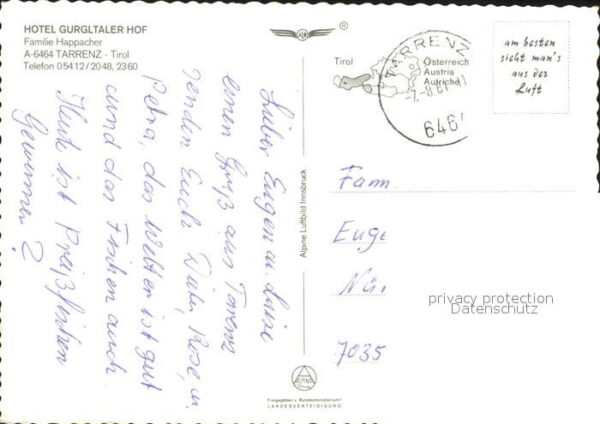 HOTEL GURGLTALER HOF
Familie Happacher
A-6464 TARRENZ - Tirol
Telefon 05412/2048, 2360
Lieber Eugen u. Luise
einen Gruß aus Tarenz
senden Euch Dieter, Rose, u.
Petra, das Wetter ist gut
und das Fischen auch.
Heute ist Preißfischen
Gewinner?
Alpine Luftbild Innsbruck
ALPINE
Freigegeben v. Bundesministerium f.
LANDESVERTEIDIGUNG
®
Tirol
Österreich
Austria
Autriche
TARRENZ
-7.-8.81-11
646
am besten
sieht man's
aus der
Luft
Fam.
Euge
Nür
7035
privacy protection
Datenschutz